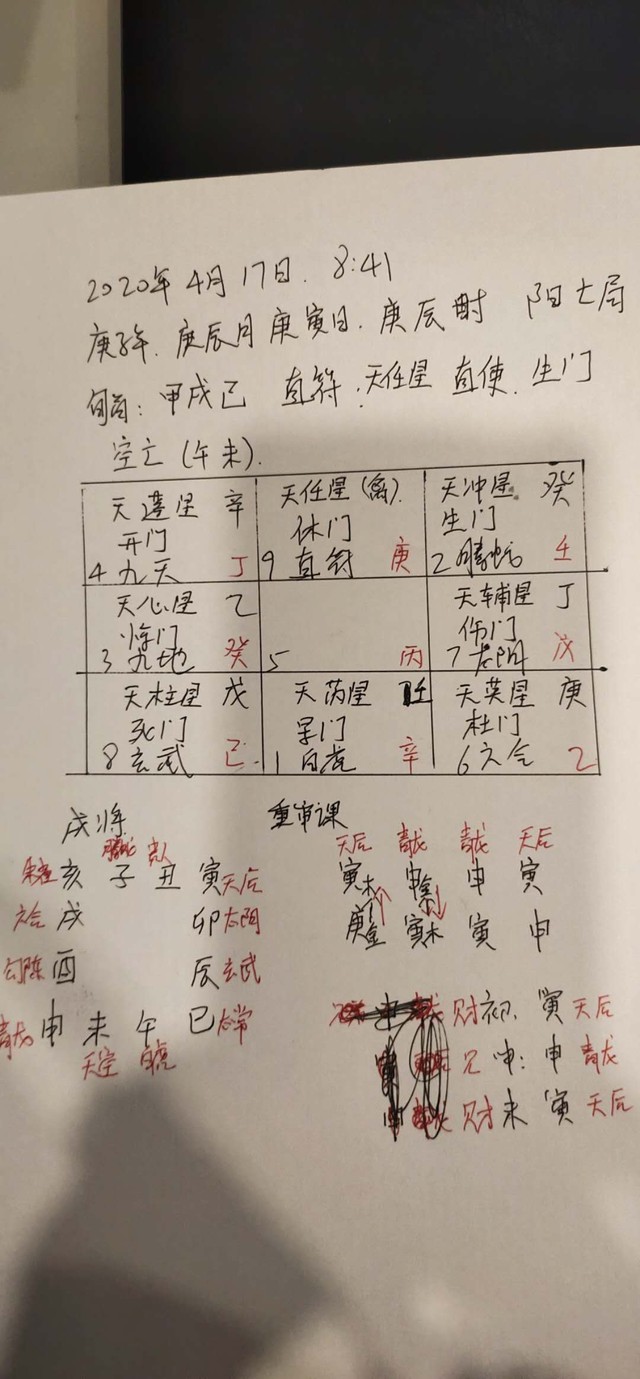 2020年4月17日. 8:41
庚子年. 庚辰月 庚寅日. 庚辰时 阳七局
旬首: 甲戌己 直符:天任星 直使. 生门
空亡(午未).
天蓬星 辛 天任星(禽). 天冲星 癸
开门 休门 生门
4 九天 丁 9 直符 庚 2 腾蛇 壬
天心星 乙 天辅星 丁
惊门 伤门
3 九地 癸 5 丙 7 太阴 戊
天柱星 戊 天芮星 壬 天英星 庚
死门 景门 杜门
8 玄武 己 1 白虎 辛 6 六合 乙
戌将 重审课
腾蛇 贵人 天后 青龙 青龙 天后
朱雀 亥 子 丑 寅 天后 寅木 申金 申 寅
六合 戌 卯 太阴 庚金 寅木 寅 申
勾陈 酉 辰 玄武
青龙 申 未 午 巳 太常 财 初. 寅 天后
天空 白虎 兄 中: 申 青龙
财 末 寅 天后